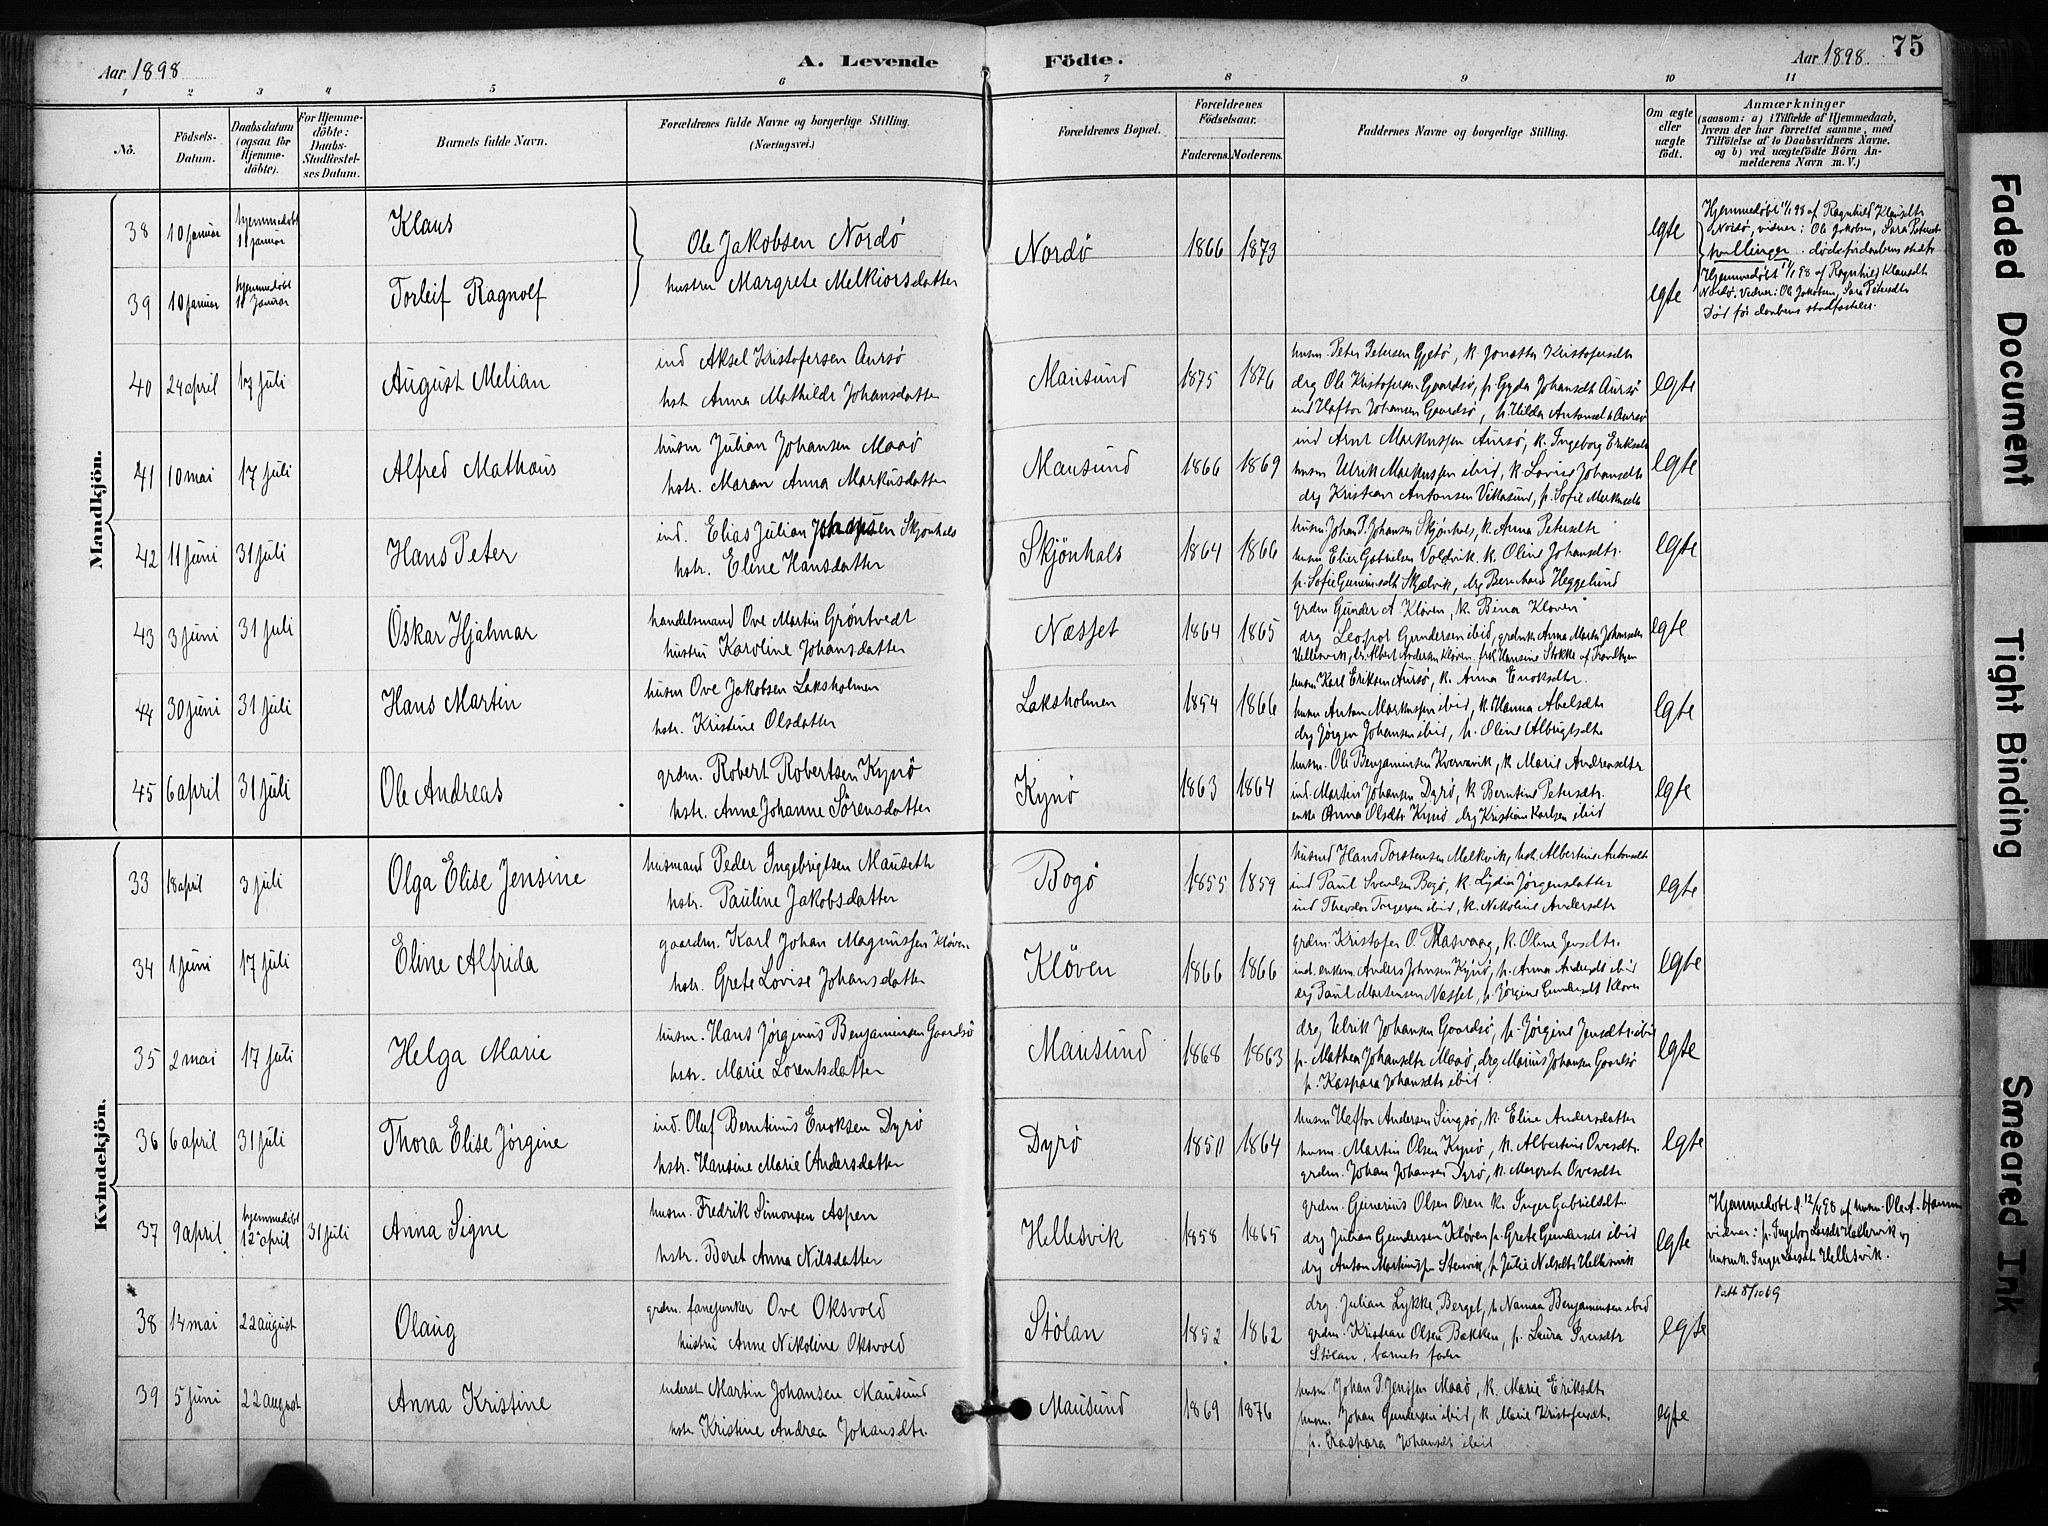 Aar 1898
A. Levende Födte.
Aar 1898.
75
1 2 3 4 5 6 7 8 9 10 11
No.
Födsels-Datum.
Daabsdatum (ogsaa for Hjemme-döbte).
For Hjemme-döbte: Daabs-Stadfæstel-ses Datum.
Barnets fulde Navn.
Forældrenes fulde Navne og borgerlige Stilling.
(Næringsvei.)
Forældrenes Bopæl.
Forældrenes Födselsaar.
Faderens. Moderens.
Faddernes Navne og borgerlige Stilling.
Om ægte eller uægte födt.
Anmærkninger
(saasom: a) i Tilfælde af Hjemmedaab, hvem der har forrettet samme, med Tilföielse af to Daabsvidners Navne, og b) ved uægtefödte Börn Anmelderens Navn m. V.)
Mandkjön.
38 10 januar hjemmedøbt 11 januar Klaus
Ole Jakobsen Nordø
hustru Margrete Melkiorsdatter
Nordø 1866 1873 egte
Hjemmedøbt 11/1 98 af Ragnhild Klausdtr
Nordø, vidner: Ole Jakobsen, Sara Petersdtr
tvillinger. død før daabens stadf.
39 10 januar hjemmedøbt 11 januar Torleif Ragnolf egte
Hjemmedøbt 11/1 98 af Ragnhild Klausdt
Nordø. Vidner: Ole Jakobsen, Sara Petersdtr
Død før daabens stadfæstelse.
40 24 april 17 juli August Melian
ind Aksel Kristofersen Aursø
hst Anna Mathilde Johansdatter
Mausund 1875 1876
husm Peter Petersen Gjetø, k. Jonette Kristofersdtr
drg Ole Kristofersen Gaardsø, p. Gyda Johansdt Aursø
ind Haftor Johansen Gaardsø, p. Hilda Antonsdt Aursø
egte
41 10 mai 17 juli Alfred Mathæus
husm Julian Johansen Maaø
hstr. Maren Anna Markusdatter
Mausund 1866 1869
ind Arnt Markussen Aursø, k. Ingeborg Eriksdtr
husm Ulrik Markussen ibid, k. Lovise Johansdtr
drg Kristian Antonsen Vittasund, p. Sofie Markusdt
egte
42 11 juni 31 juli Hans Peter
ind. Elias Julian Johansen Skjønhals
hstr. Eline Hansdatter
Skjönhals 1864 1866
husm. Johan P. Johansen Skjønhals, k. Anna Petersdtr
husm Elier Gabrielsen Voldvik k. Oline Johansdtr.
p. Sofie Gunnersdt Skjelvik, drg Bernhard Heggelund
egte
43 3 juni 31 juli Oskar Hjalmar
handelsmand Ove Martin Grøntvedt
hustru Karoline Johansdatter
Næsset 1864 1865
grdm Gunder A. Kløven, k. Bina Kløven
drg Leopol Gundersen ibid, grdmk Anna Marta Johansdtr
Hellesvik, drg Albert Andersen Kløven, frk Hansine Stokke af Trondhjem
egte
44 30 juni 31 juli Hans Martin
husm Ove Jakobsen Laksholmen
hstr. Kristine Olsdatter
Laksholmen 1854 1866
husm Karl Eriksen Aursø, k. Anna Enoksdtr.
husm Anton Markussen ibid, k. Hanna Abelsdtr
drg Jørgen Johansen ibid, p. Oline Albrigtsdtr
egte
45 6 april 31 juli Ole Andreas
grdm. Robert Robertsen Kynø
hstr. Anne Johanne Sörensdatter
Kynø 1863 1864
husm. Ole Benjaminsen Kvernvik, k Marie Andreasdtr
ind. Martin Johansen Dyrø, k Berntine Petersdtr.
enke Anna Olsdtr Kynø drg Kristian Karlsen ibid
egte
Kvindekjön.
33 18 april 3 juli Olga Elise Jensine
husmand Peder Ingebrigtsen Mauseth
hstr. Pauline Jakobsdatter
Bogø 1855 1859
husmd Hans Torstensen Melkvik, hst. Albertine Antonsdt
ind Paul Svendsen Bogø, k. Lydia Jørgensdatter
ind Theodor Torgersen ibid, k. Nikoline Andersdtr
egte
34 1 juni 17 juli Eline Alfrida
gaardm. Karl Johan Magnussen Kløven
hstr. Grete Lovise Johansdatter
Kløven 1866 1866
grdm. Kristofer O. Masvaag, k. Oline Jensdtr.
ind. enkem. Anders Johnsen Kynø, p. Anna Andersdt ibid
drg Paul Martensen Næsset, p. Jørgine Gundersdt Kløven
egte
35 2 mai 17 juli Helga Marie
husm. Hans Jörginus Benjaminsen Gaardsø
hstr. Marie Lorentsdatter
Mausund 1868 1863
drg Ulrik Johansen Gaardsø, p. Jørgine Jensdtr ibid
p. Mathea Johansdtr Maaø, drg Marius Johansen Gaardsø
p. Kaspara Johansdtr ibid
egte
36 6 april 31 juli Thora Elise Jörgine
ind. Oluf Berntinus Enoksen Dyrø
hstr. Hansine Marie Andersdatter
Dyrø 1850 1864
husm Haftor Andersen Singsø, k. Eline Andersdatter
husm. Martin Olsen Kynø, k. Albertine Ovesdtr.
grdm. Johan Johansen Dyrø, k. Margrete Ovesdtr
egte
37 9 april. hjemmedøbt 12 april 31 juli Anna Signe
husm. Fredrik Simonsen Aspen
hstr. Beret Anna Nilsdatter
Hellesvik 1858 1865
grdm. Gunerius Olsen Oren k. Inger Gabrielsdt.
drg Julian Gundersen Kløven p. Grete Gundersdt ibid
drg Anton Martinussen Stenvik, p. Julie Nilsdtr Hellesvik
egte
Hjemmedøbt d. 12/4 98 af husm. Ole A.
vidner: p. Ingeborg Larsdt Hellesvik og
husmk. Inger Larsdt Hellesvik.
38 14 mai 22 august Olaug
grdm. fanejunker Ove Oksvold
hustru Anne Nikoline Oksvold
Stølan 1852 1862
drg. Julian Lykke, Berget, p. Nanna Benjaminsen ibid
grdm. Kristian Olsen Bakken, p. Laura Iversdtr
Stølan, barnets fader
egte
39 5 juni 22 august Anna Kristine
inderst Martin Johansen Mausund
hstr Kristine Andrea Johansdtr.
Mausund 1869 1876
husm. Johan P. Jenssen Maaø, k. Marie Eriksdtr
husm. Johan Gundersen ibid, k. Marie Kristofersdt.
p. Kaspara Johansdt ibid
egte
Faded Document
Tight Binding
Smeared Ink